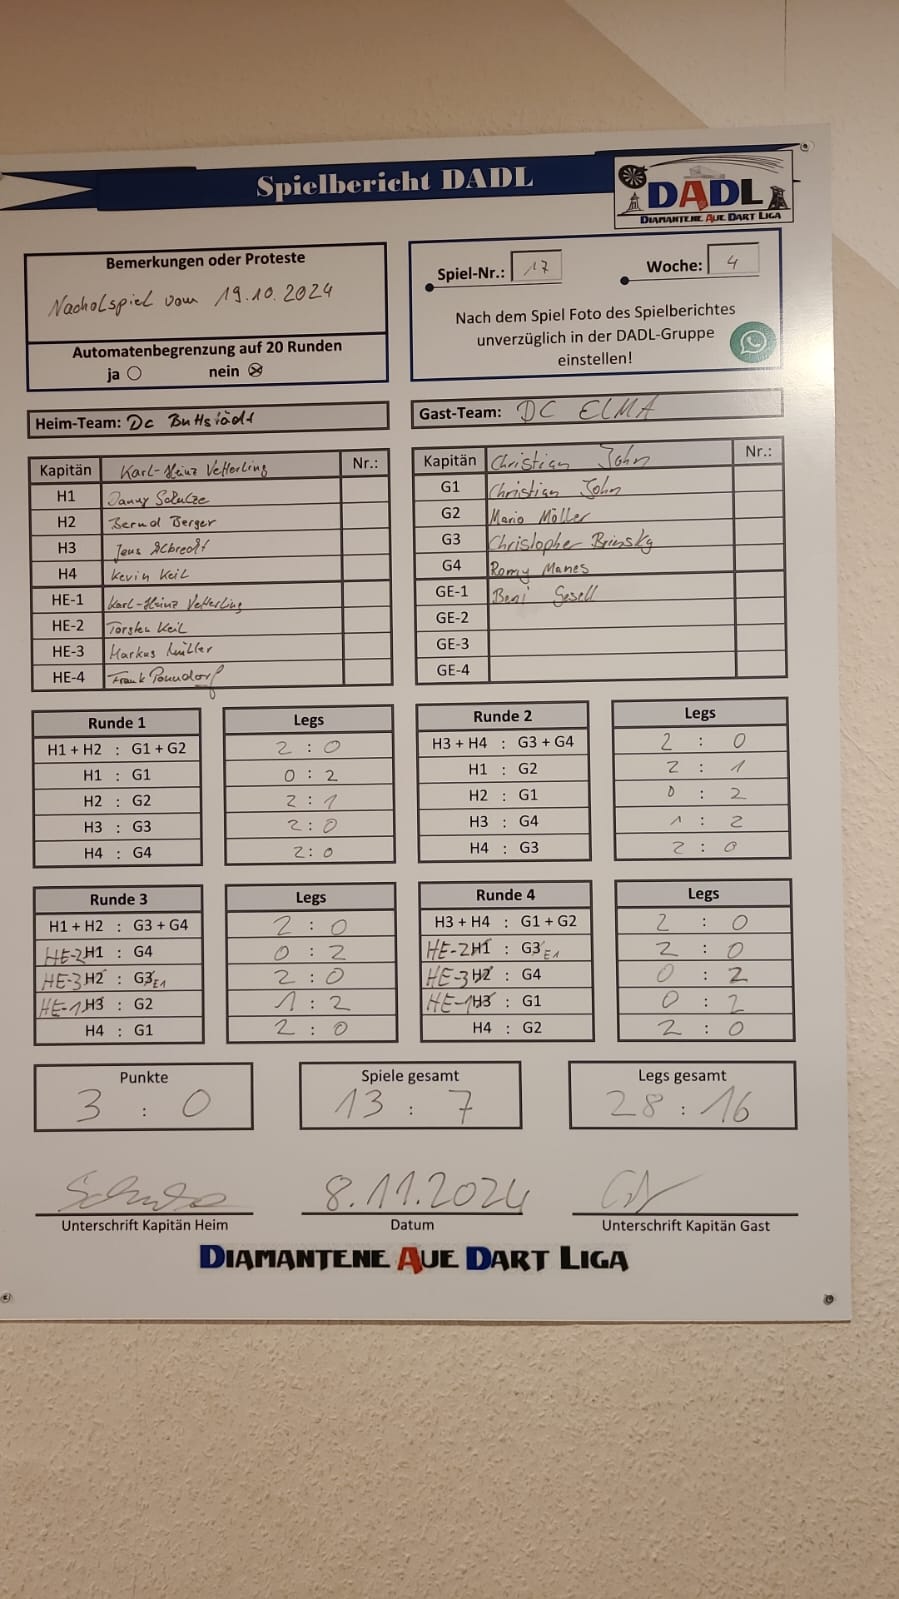 Spielbericht DADL
DADL
DIAMANTENE AUE DART LIGA
Bemerkungen oder Proteste
Nacholspiel vom 19.10.2024
Automatenbegrenzung auf 20 Runden
ja nein
Spiel-Nr.: 17 Woche: 4
Nach dem Spiel Foto des Spielberichtes
unverzüglich in der DADL-Gruppe
einstellen!
Heim-Team: DC Buttstädt
Gast-Team: DC ELMA
Kapitän Karl-Heinz Vetterling Nr.:
H1 Danny Schulze
H2 Bernd Berger
H3 Jens Albrecht
H4 Kevin Keil
HE-1 Karl-Heinz Vetterling
HE-2 Torsten Keil
HE-3 Markus Müller
HE-4 Frank
Kapitän Christian John Nr.:
G1 Christian John
G2 Mario Möller
G3 Christopher Brinsky
G4 Romy Manes
GE-1 Beni Gesell
GE-2
GE-3
GE-4
Runde 1 Legs
H1 + H2 : G1 + G2 2 : 0
H1 : G1 0 : 2
H2 : G2 2 : 1
H3 : G3 2 : 0
H4 : G4 2 : 0
Runde 2 Legs
H3 + H4 : G3 + G4 2 : 0
H1 : G2 2 : 1
H2 : G1 0 : 2
H3 : G4 1 : 2
H4 : G3 2 : 0
Runde 3 Legs
H1 + H2 : G3 + G4 2 : 0
HE-2 H1 : G4 0 : 2
HE-3 H2 : G3 E1 2 : 0
HE-1 H3 : G2 1 : 2
H4 : G1 2 : 0
Runde 4 Legs
H3 + H4 : G1 + G2 2 : 0
HE-2 H1 : G3 E1 2 : 0
HE-3 H2 : G4 0 : 2
HE-1 H3 : G1 0 : 2
H4 : G2 2 : 0
Punkte Spiele gesamt Legs gesamt
3 : 0 13 : 7 28 : 16
8.11.2024
Unterschrift Kapitän Heim Datum Unterschrift Kapitän Gast
DIAMANTENE AUE DART LIGA